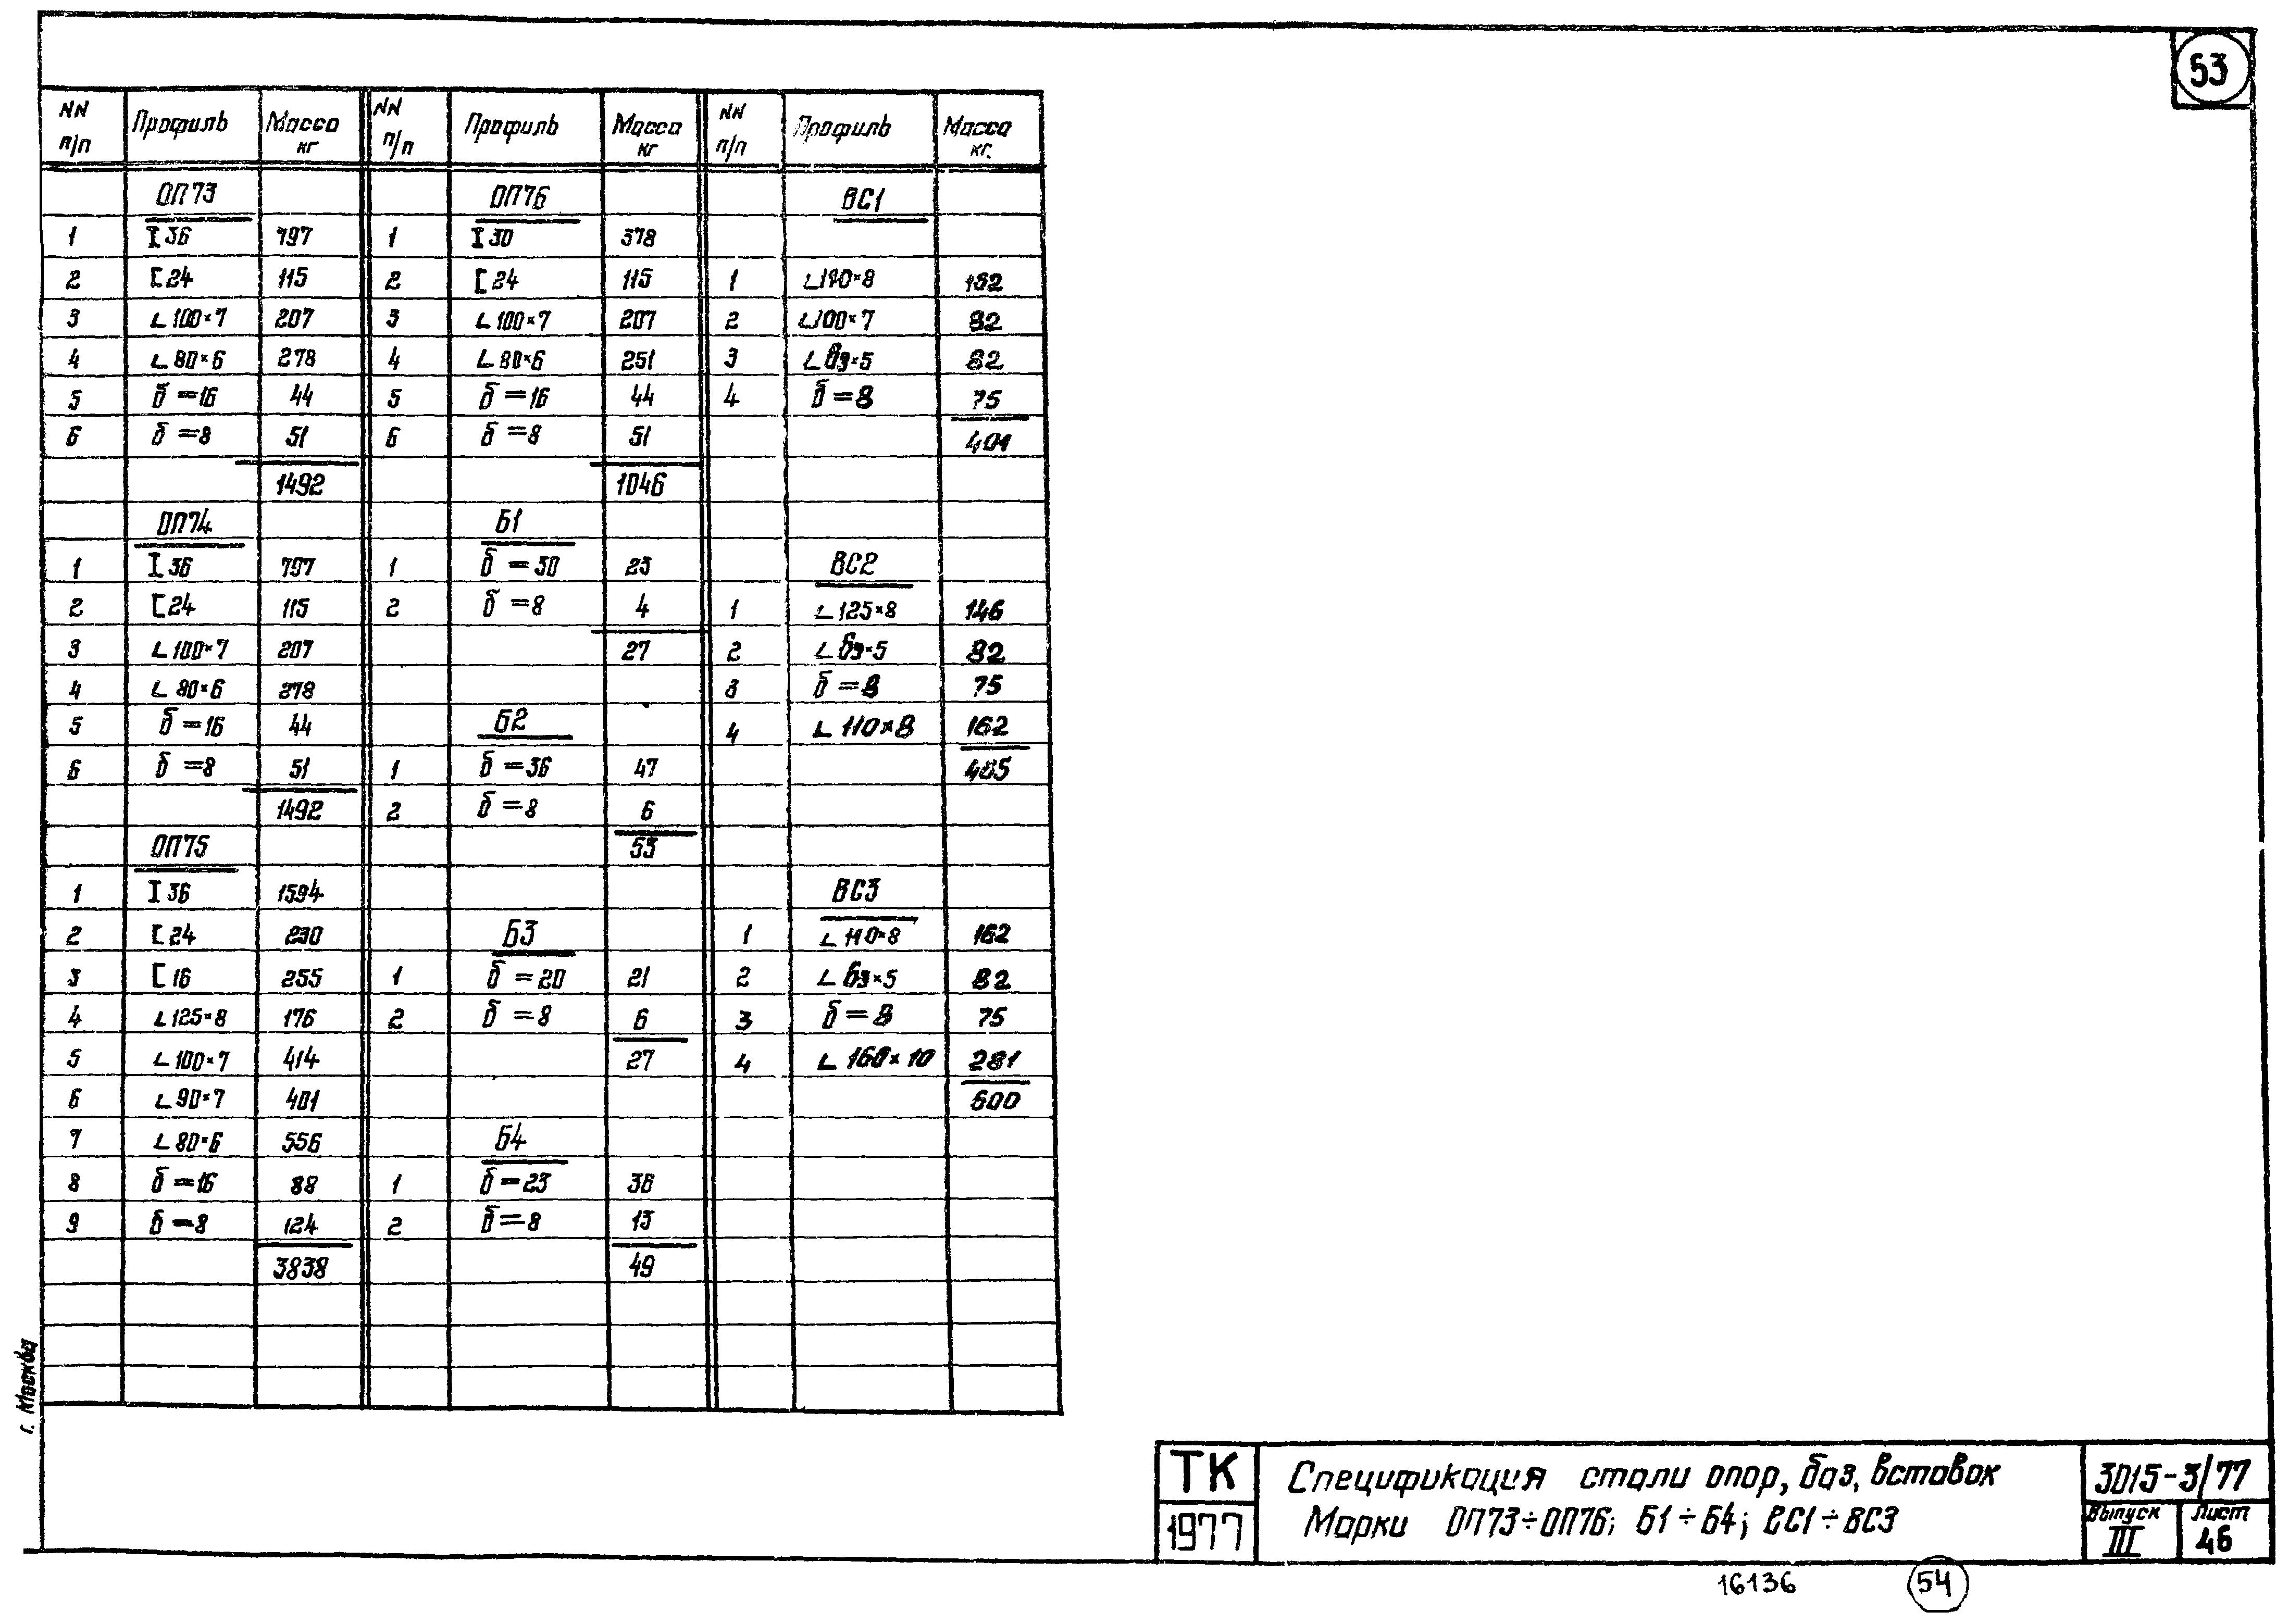 53
NN п/п Профиль Масса кг NN п/п Профиль Масса кг NN п/п Профиль Масса кг.
ОП73 ОП76 ВС1
1 I 36 797 1 I 30 378
2 [ 24 115 2 [ 24 115 1 ∟110×8 162
3 ∟100×7 207 3 ∟100×7 207 2 ∟100×7 82
4 ∟80×6 278 4 ∟80×6 251 3 ∟63×5 82
5 δ=16 44 5 δ=16 44 4 δ=8 75
6 δ=8 51 6 δ=8 51 401
1492 1046
ОП74 Б1
1 I 36 797 1 δ=30 23 ВС2
2 [ 24 115 2 δ=8 4 1 ∟125×8 146
3 ∟100×7 207 27 2 ∟63×5 82
4 ∟80×6 278 3 δ=8 75
5 δ=16 44 Б2 4 ∟110×8 162
6 δ=8 51 1 δ=36 47 465
1492 2 δ=8 6
ОП75 53
1 I 36 1594 ВС3
2 [ 24 230 Б3 1 ∟110×8 162
3 [ 16 255 1 δ=20 21 2 ∟63×5 82
4 ∟125×8 176 2 δ=8 6 3 δ=8 75
5 ∟100×7 414 27 4 ∟160×10 281
6 ∟90×7 401 600
7 ∟80×6 556 Б4
8 δ=16 88 1 δ=23 36
9 δ=8 124 2 δ=8 13
3838 49
г. Москва
ТК
1977
Спецификация стали опор, баз, вставок
Марки ОП73÷ОП76; Б1÷Б4; ВС1÷ВС3
3015-3/77
Выпуск III
Лист 46
16136
54